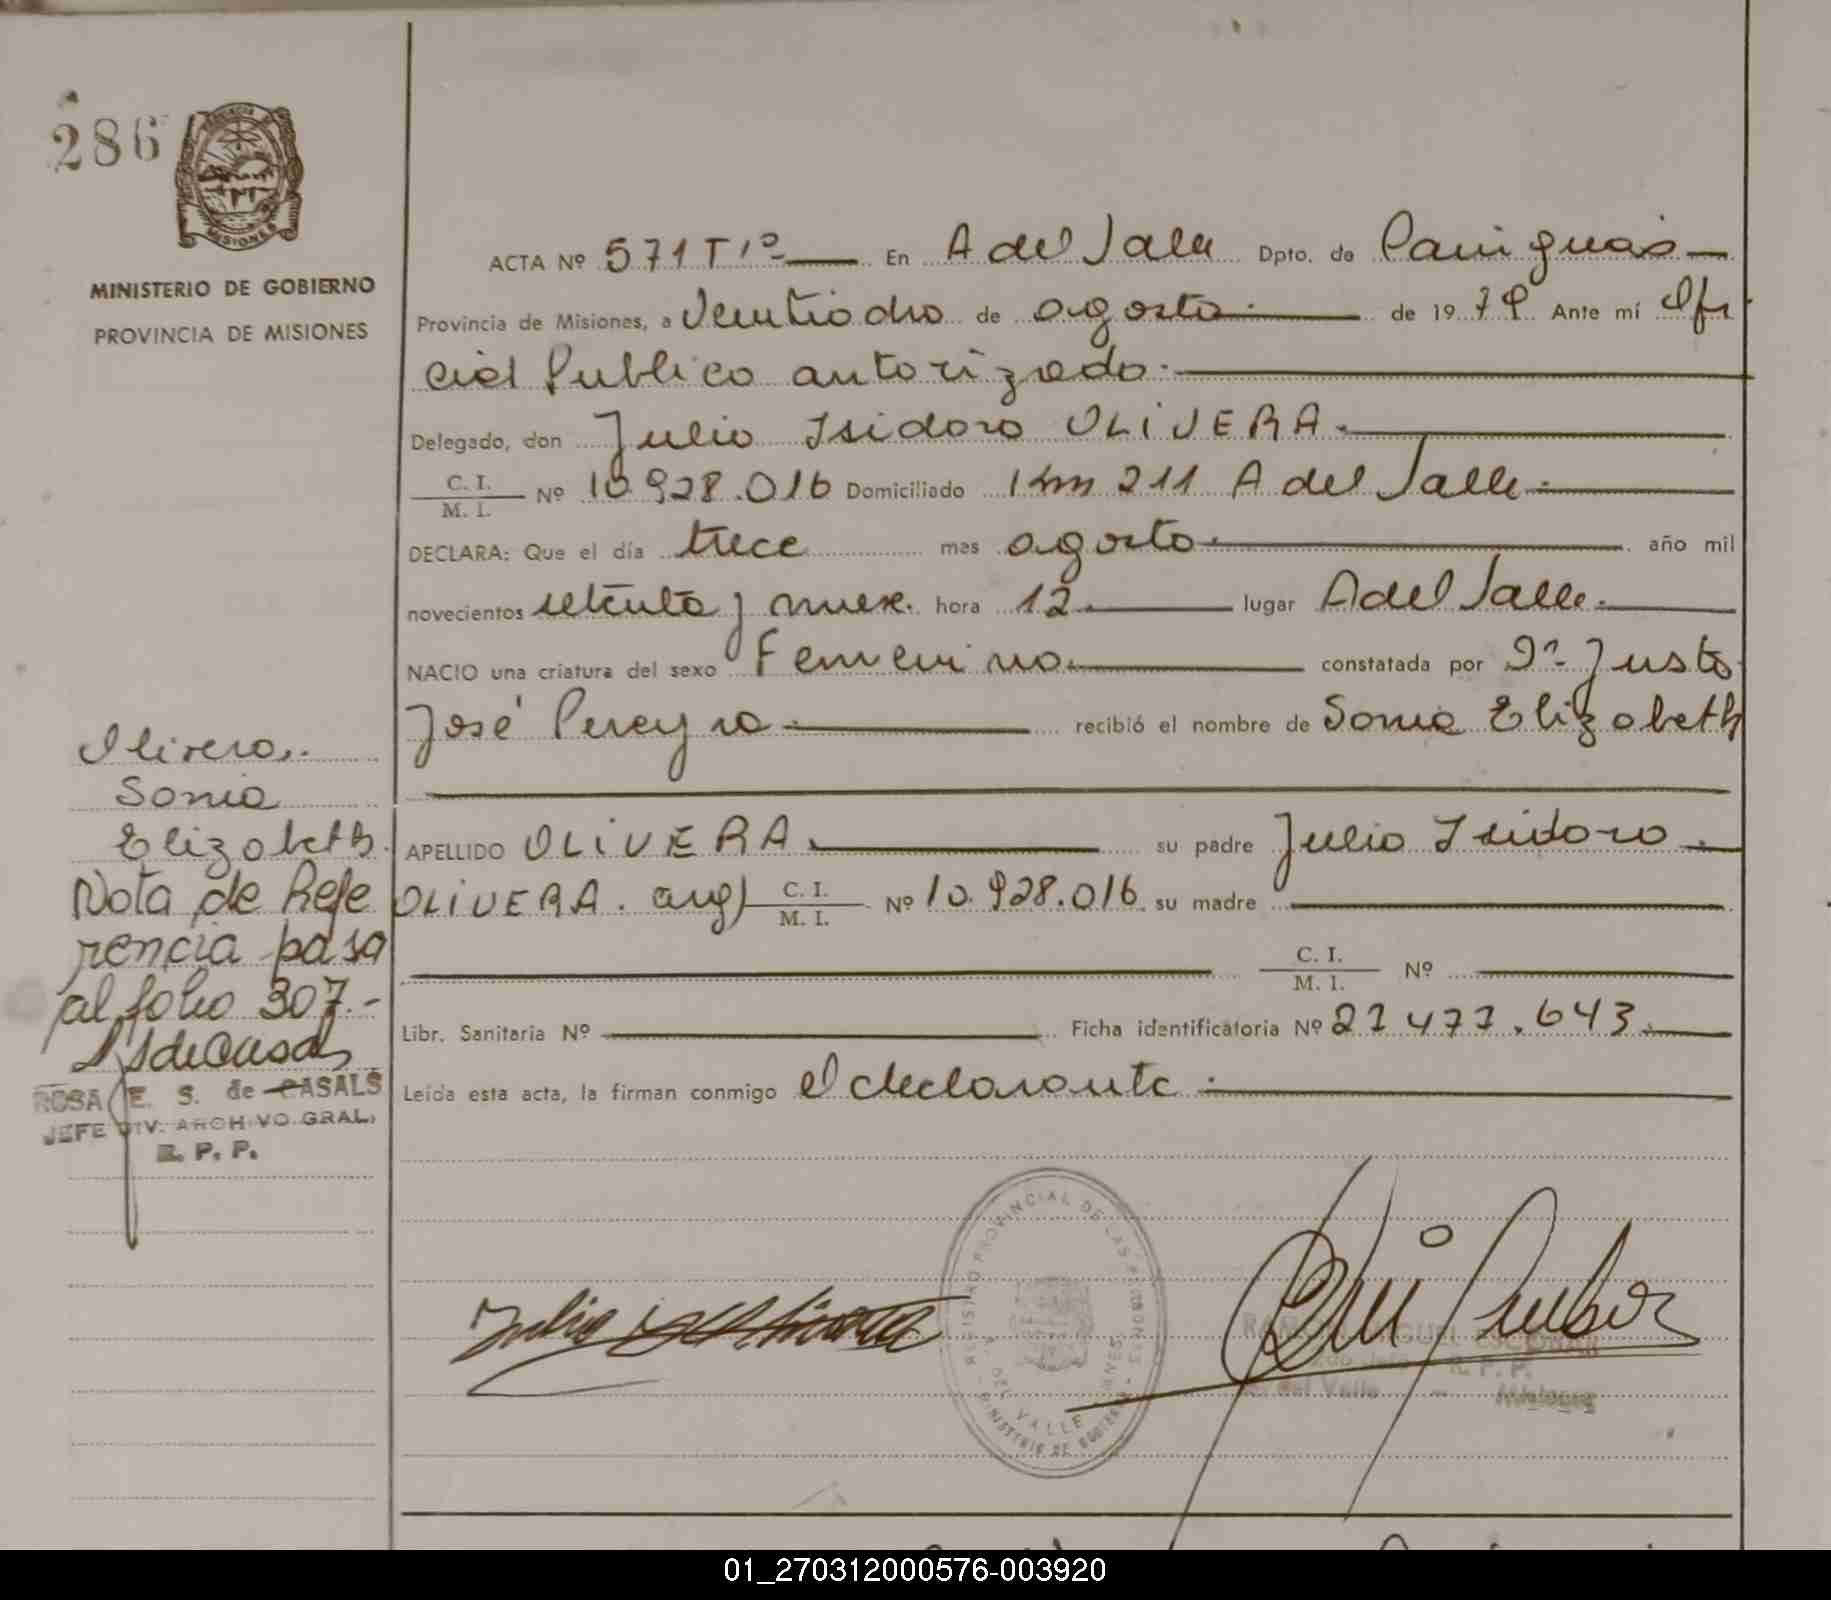 286
MINISTERIO DE GOBIERNO
PROVINCIA DE MISIONES
ACTA Nº 571 Tº 1º En A del Valle Dpto. de Cainguas
Provincia de Misiones, a Veintiocho de agosto de 1979 Ante mí Ofi
cial Publico autorizado
Delegado, don Julio Isidoro OLIVERA
C. I.
M. I. Nº 10.928.016 Domiciliado Km 211 A del Valle
DECLARA: Que el día trece mes agosto año mil
novecientos setenta y nueve hora 12 lugar A del Valle
NACIO una criatura del sexo Femenino constatada por Dr. Justo
José Pereyra recibió el nombre de Sonia Elizabeth
APELLIDO OLIVERA su padre Julio Isidoro
OLIVERA. arg) C. I.
M. I. Nº 10.928.016 su madre
C. I.
M. I. Nº
Libr. Sanitaria Nº Ficha identificatoria Nº 27 477.643
Leída esta acta, la firman conmigo el declarante
Olivera
Sonia
Elizabeth
Nota de Refe
rencia pasa
al folio 307.-
ROSA E. S. de CASALS
JEFE DIV. ARCHIVO GRAL.
R. P. P.
REGISTRO PROVINCIAL DE LAS PERSONAS
A. DEL VALLE MNES.
MINISTERIO DE GOBIERNO
MIGUEL ESCOBAR
R. P. P.
del Valle - Misiones
01_270312000576-003920